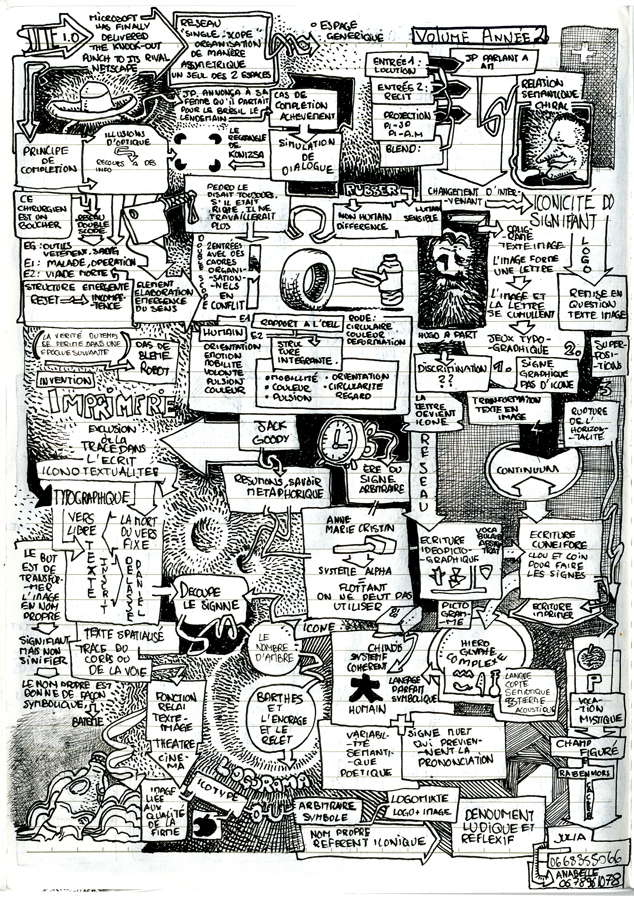 1.0
MICROSOFT
HAS FINALLY
DELIVERED
THE KNOCK-OUT
PUNCH TO ITS RIVAL
NETSCAPE
RESEAU
"SINGLE SCOPE"
ORGANISATION
DE MANIÈRE
ASYMETRIQUE
UN SEUL DES 2 ESPACES
ESPACE
GENERIQUE
VOLUME ANNÉE 2
ENTRÉE 1 :
LOCUTION
ENTRÉE 2 :
RECIT
PROJECTION
PI-JP
PI-A.M
BLEND :
JP PARLANT A
AM
RELATION
SEMANTIQUE
CHIRAL
JP. ANNONÇA À SA
FEMME QU'IL PARTAIT
POUR LE BRESIL LE
LENDEMAIN
CAS DE
COMPLETION
ACHEVEMENT
SIMULATION
DE
DIALOGUE
PRINCIPE
DE
COMPLETION
ILLUSIONS
D'OPTIQUE
RECOURS A DES
INFO
LE
RECTANGLE
DE
KONIZSA
CE
CHIRURGIEN
EST UN
BOUCHER
RESEAU
DOUBLE
SCOPE
PEDRO LE
DISAIT TOUJOURS.
S'IL ETAIT
RICHE, IL NE
TRAVAILLERAIT
PLUS
RUBBER
NON HUMAIN
DIFFERENCE
HUMAIN
SENSIBLE
CHANGEMENT D'INTER-
VENANT
ICONICITE DU
SIGNIFIANT
LOGO
EG : OUTILS
VETEMENT, SANG
E1 : MALADE, OPERATION
E2 : VIANDE MORTE
STRUCTURE EMERGENTE
REJET
INCOMPETENCE
ELEMENT
ELABORATION
EMERGENCE
DU SENS
DOUBLE SCOPE
2 ENTRÉES
AVEC DES
CADRES
ORGANI-
SATION-
NELS
EN
CONFLIT
CALIG-
RAMME
TEXTE IMAGE
L'IMAGE FORME
UNE LETTRE
L'IMAGE ET
LA LETTRE
SE CUMULLENT
REMISE EN
QUESTION
TEXTE IMAGE
HUGO A PART
LA VERITE DU TEMPS
EPOQUE SUIVANTE
INVENTION
CAS DE
BLEME
ROBOT
E1
HUMAIN
ORIENTATION
EMOTION
MOBILITÉ
VOLONTÉ
PULSION
COULEUR
E2
RAPPORT A L'OEIL
STRUCTURE
INTEGRANTE :
ROUE :
CIRCULAIRE
COULEUR
DEFORMATION
• MOBILITÉ
• COULEUR
• PULSION
• ORIENTATION
• CIRCULARITE
REGARD
JEUX TYPO-
GRAPHIQUE
DISCRIMINATION
??
1.
SIGNE
GRAPHIQUE
PAS D'ICONE
2.
SUPER-
POSI-
TIONS
3
IMPRIMERIE
LA
LETTRE
DEVIENT
ICONE
TRANSFORMATION
TEXTE EN
IMAGE
RUPTURE
DE L'
HORIZON-
TALITÉ
EXCLUSION
de la
TRACE DANS
L'ECRIT
JACK
GOODY
ICONOTEXTUALITEE
RESUMONS, SAVOIR
METAPHORIQUE
ÈRE DU
SIGNE
ARBITRAIRE
RESEAU
CONTINUUM
TYPOGRAPHIQUE
VERS
LIBRE
LA MORT
DU VERS
FIXE
TEXTE
DANIEL
DELASSE
ANNE
MARIE CRISTIN
SYSTEME ALPHA
=
FLOTTANT
ON NE PEUT PAS
UTILISER
ECRITURE
IDEOPICTO-
GRAPHIQUE
ECRITURE
CUNEIFORE
CLOU ET COIN
POUR FAIRE
LES SIGNES
LE
BUT
EST DE
TRANSFOR-
MER
L'IMAGE
EN NOM
PROPRE
DECOUPE
LE SIGNNIE
ECRITURE
IMPRIMER
PICTO
GRAM-
ME
SIGNIFIANT
MAIS NON
SINIFIER
TEXTE SPATIALISÉ
TRACE DU
CORPS OU
DE LA VOIE
LE
NOMBRE
D'AMBRE
ICONE :
CHINOIS
SYSTEME
COHERENT
HUMAIN
LANGAGE
PARFAIT
SYMBOLIQUE
HIERO
GLYPHE
COMPLEXE
LANGUE
COPTE
SEMIOTIQUE
SYSTEME
ACOUSTIQUE
VOCA-
TION
MYSTIQUE
LE NOM PROPRE EST
DONNE DE FAÇON
SYMBOLIQUE
BATEME
FONCTION
RELAI
TEXTE-
IMAGE
THEATRE
CINE-
MA
BARTHES
ET
L'ENCRAGE
ET LE
RELET
VARIABIL-
ITÉ
SEMANTI-
QUE
POETIQUE
SIGNE MUET
QUI PREVIEN-
NENT LA
PRONONCIATION
CHAMP
FIGURÉ
LOGORAMA
ICOTYPE
IMAGE
LIEE
AUX
QUALITÉ
DE LA
FIRME
ARBITRAIRE
SYMBOLE
LOGOMIXTE
LOGO + IMAGE
NOM PROPRE
REFERENT ICONIQUE
DENOUMENT
LUDIQUE ET
REFLEXIF
JULIA
0668355066
ANABELLE